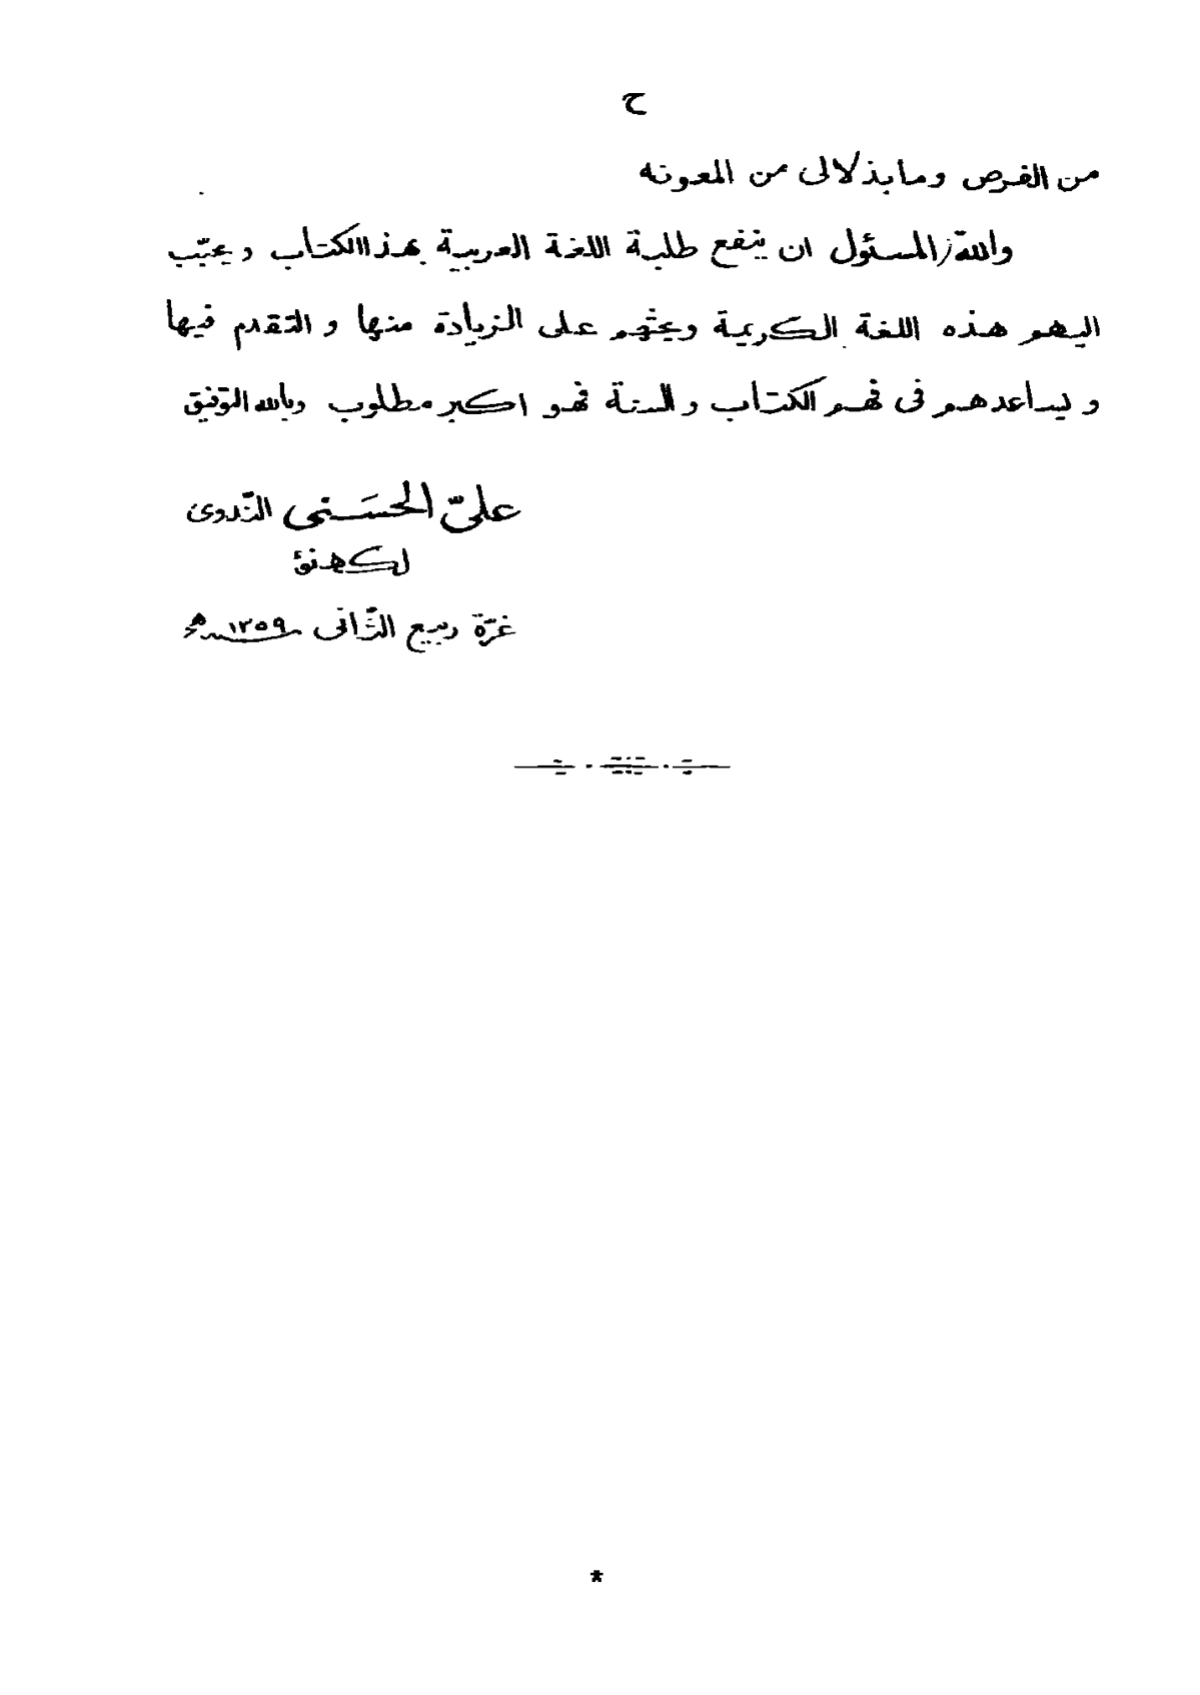 ح
من الفرص وما بذلا لى من المعونه
والله المسئول ان ينفع طلبة اللغة العربية بهذا الكتاب و يحبّب
اليهم هذه اللغة الكريمة ويحثهم على الزيادة منها و التقدم فيها
و يساعدهم فى فهم الكتاب و السنة فهو اكبر مطلوب وبالله التوفيق
علىّ الحسَنى النّدوى
لكهنؤ
غرّة ربيع الثّانى ١٣٥٩ھ
*